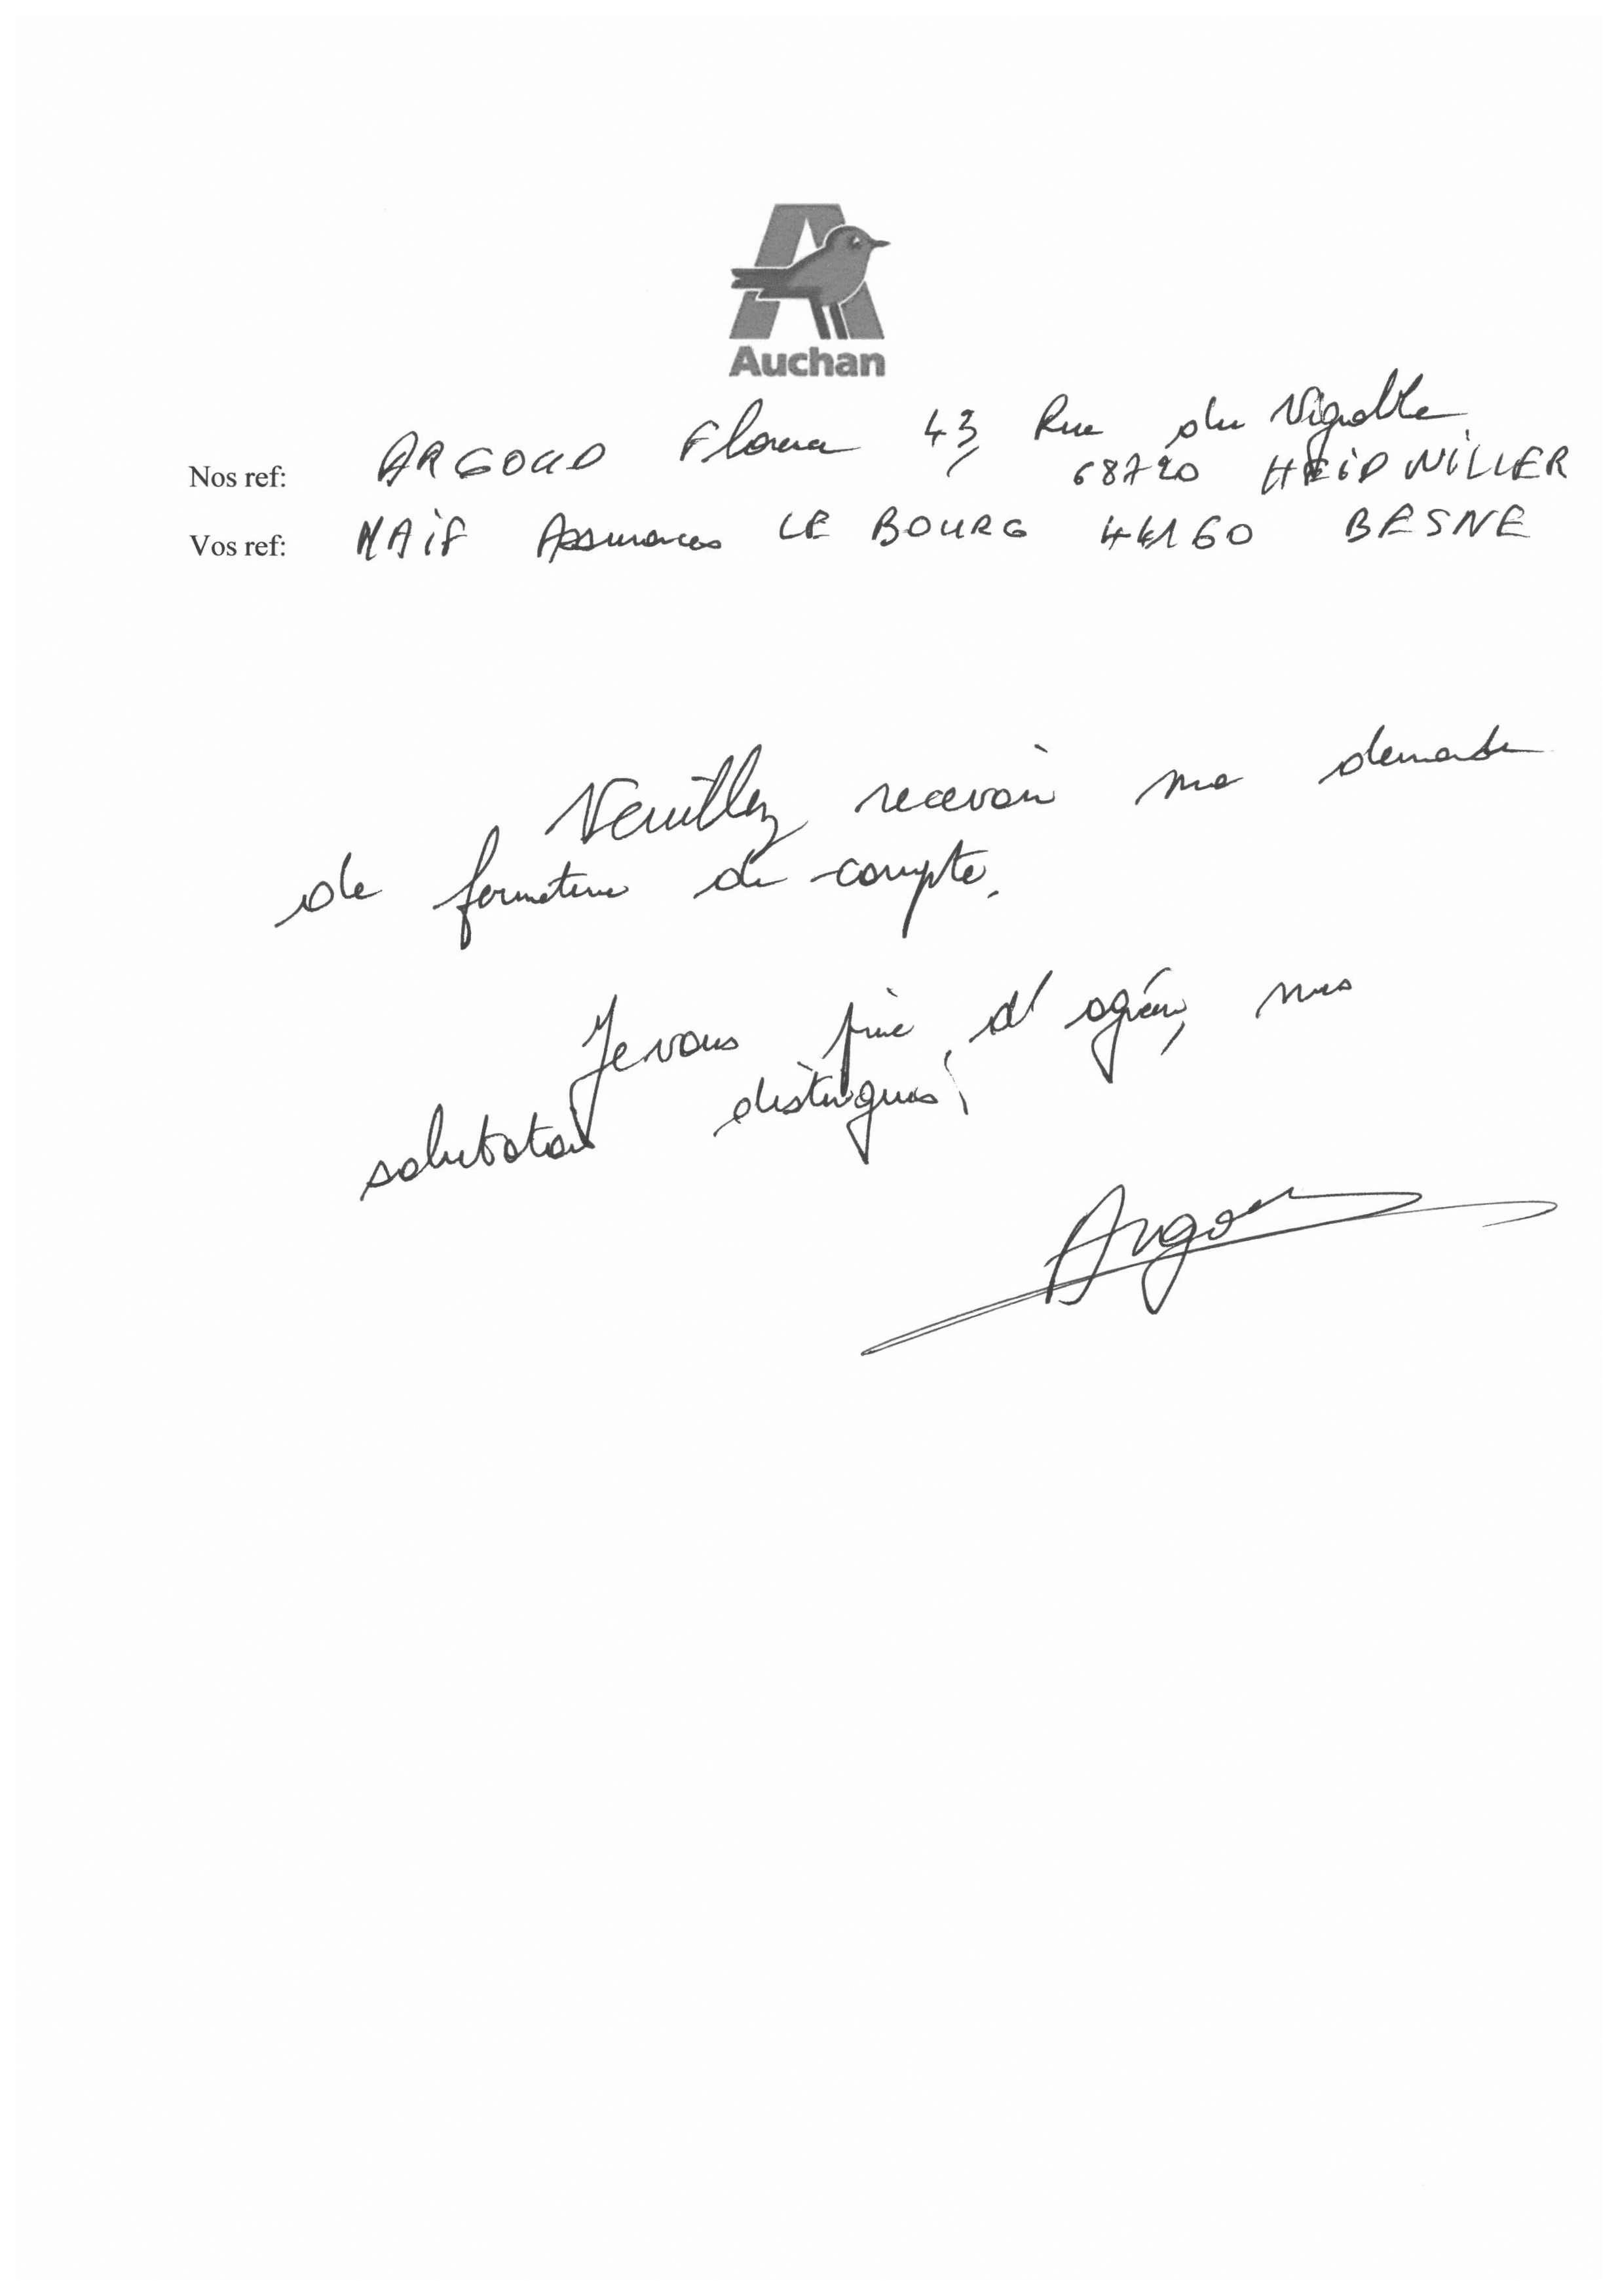 Auchan
ARGOUD 43, Rue du Vignoble
Nos ref: 68720 HEIDWILLER
Vos ref: MAIF Assurances LE BOURG 44160 BESNE
Veuillez recevoir ma demande
de fermeture de compte.
Je vous prie, d'agréer, mes
salutation distingues,
Argou